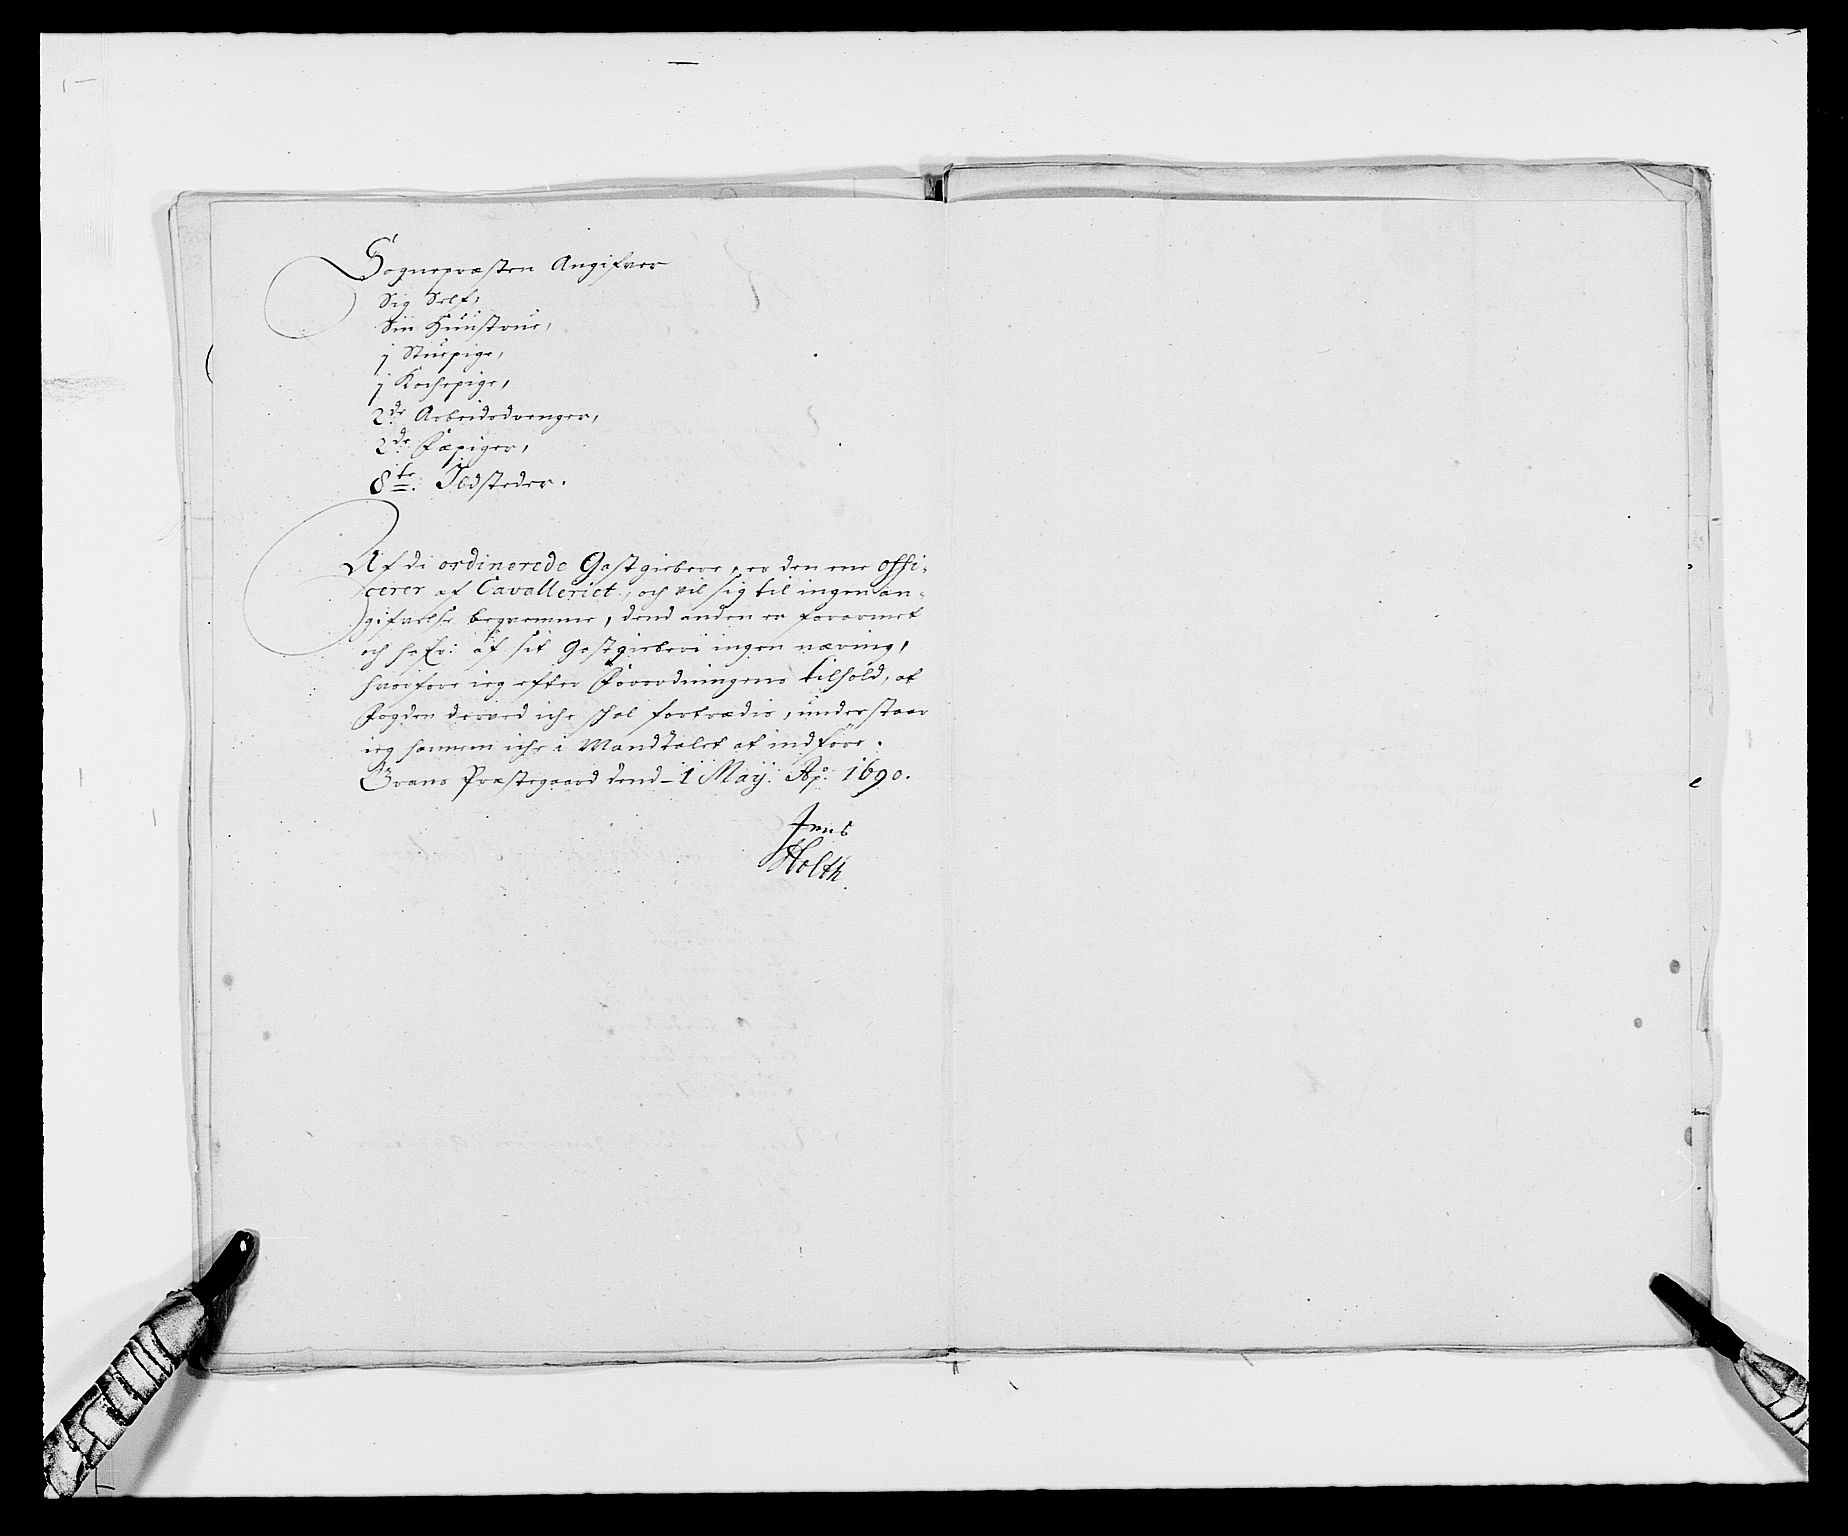 Sognepræsten Angifver
Sig Self,
Sin Hüüstrue,
j Stuepige,
j Kochepige,
2de Arbeidsdrenger,
2de Fæpiger,
8te: Ildsteder.
Af de ordinerede Gestgiebere, er den ene offi-
cerer af Cavalleriet, och vil sig til ingen an-
gifvelse beqvemme, dend anden er forarmet
och hafr: af sit Gestgieberi ingen næring,
hvorfore ieg efter Forordningens tilhold, at
Fogden derved iche skal fortrædis, understaar
ieg hannem iche i Mandtalet at indføre.
Grans Præstegaard dend 1 Maij: Ao: 1690.
Jens
Holth.